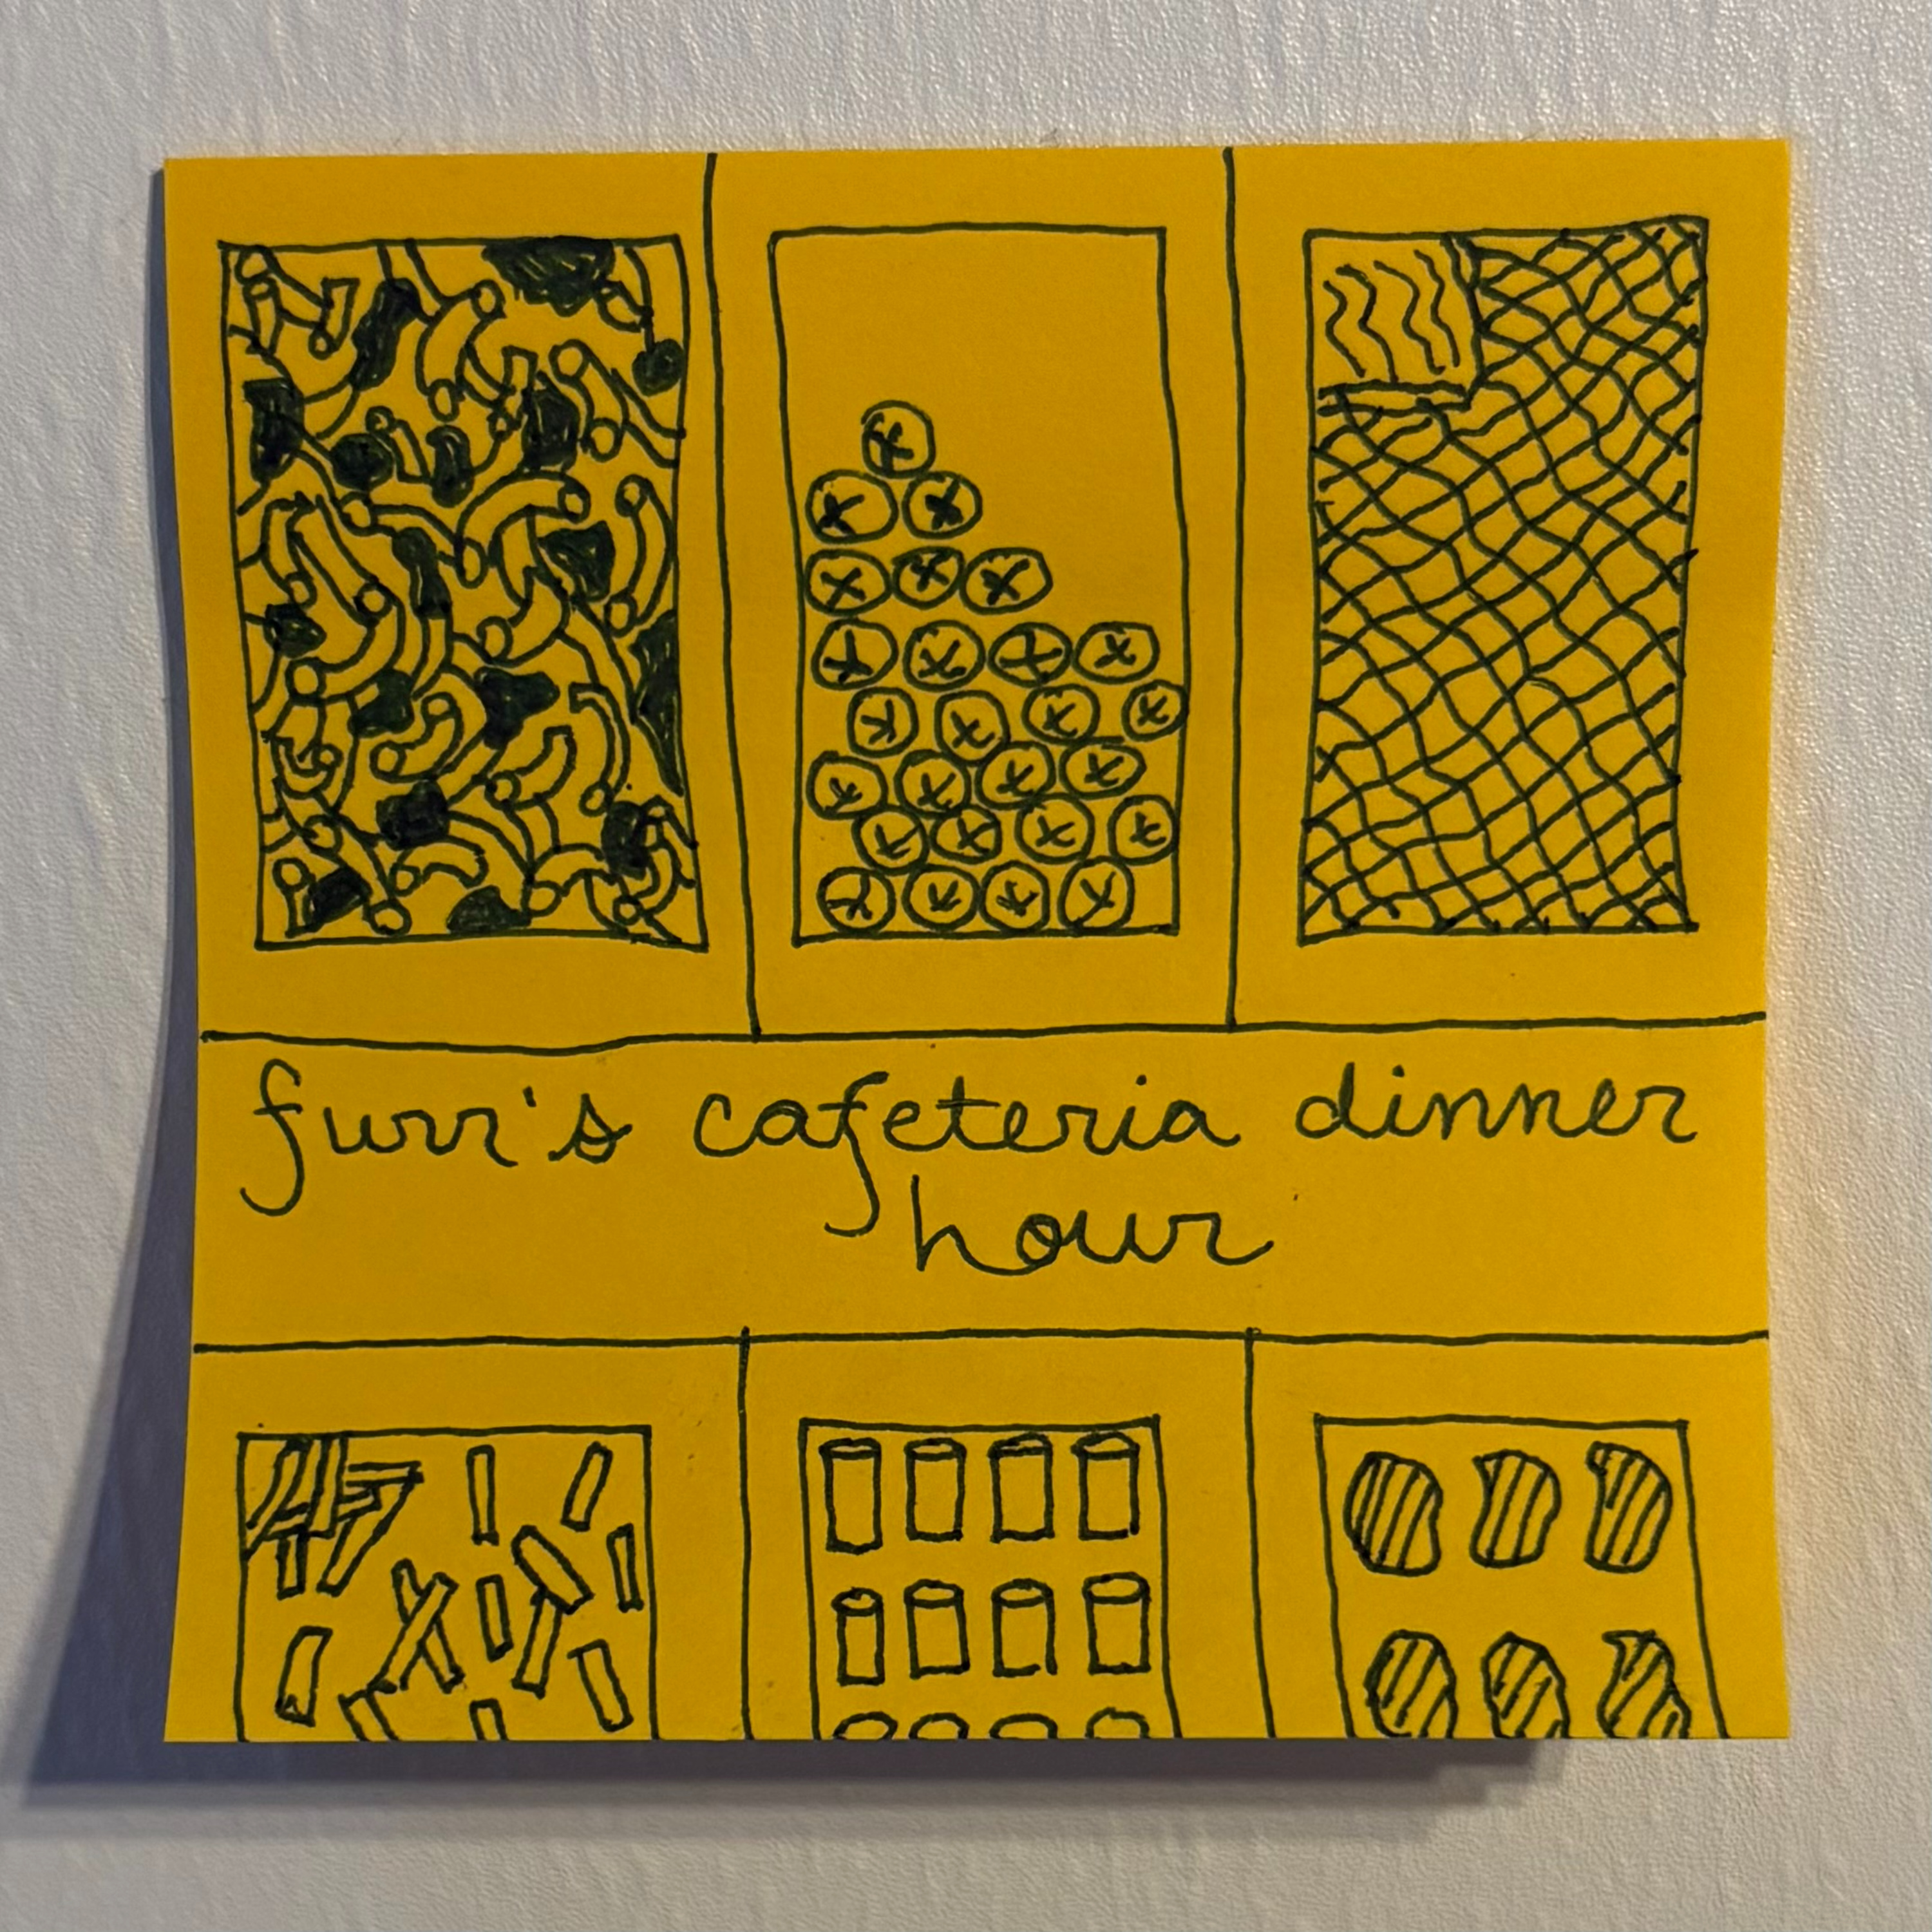 furr's cafeteria dinner
hour